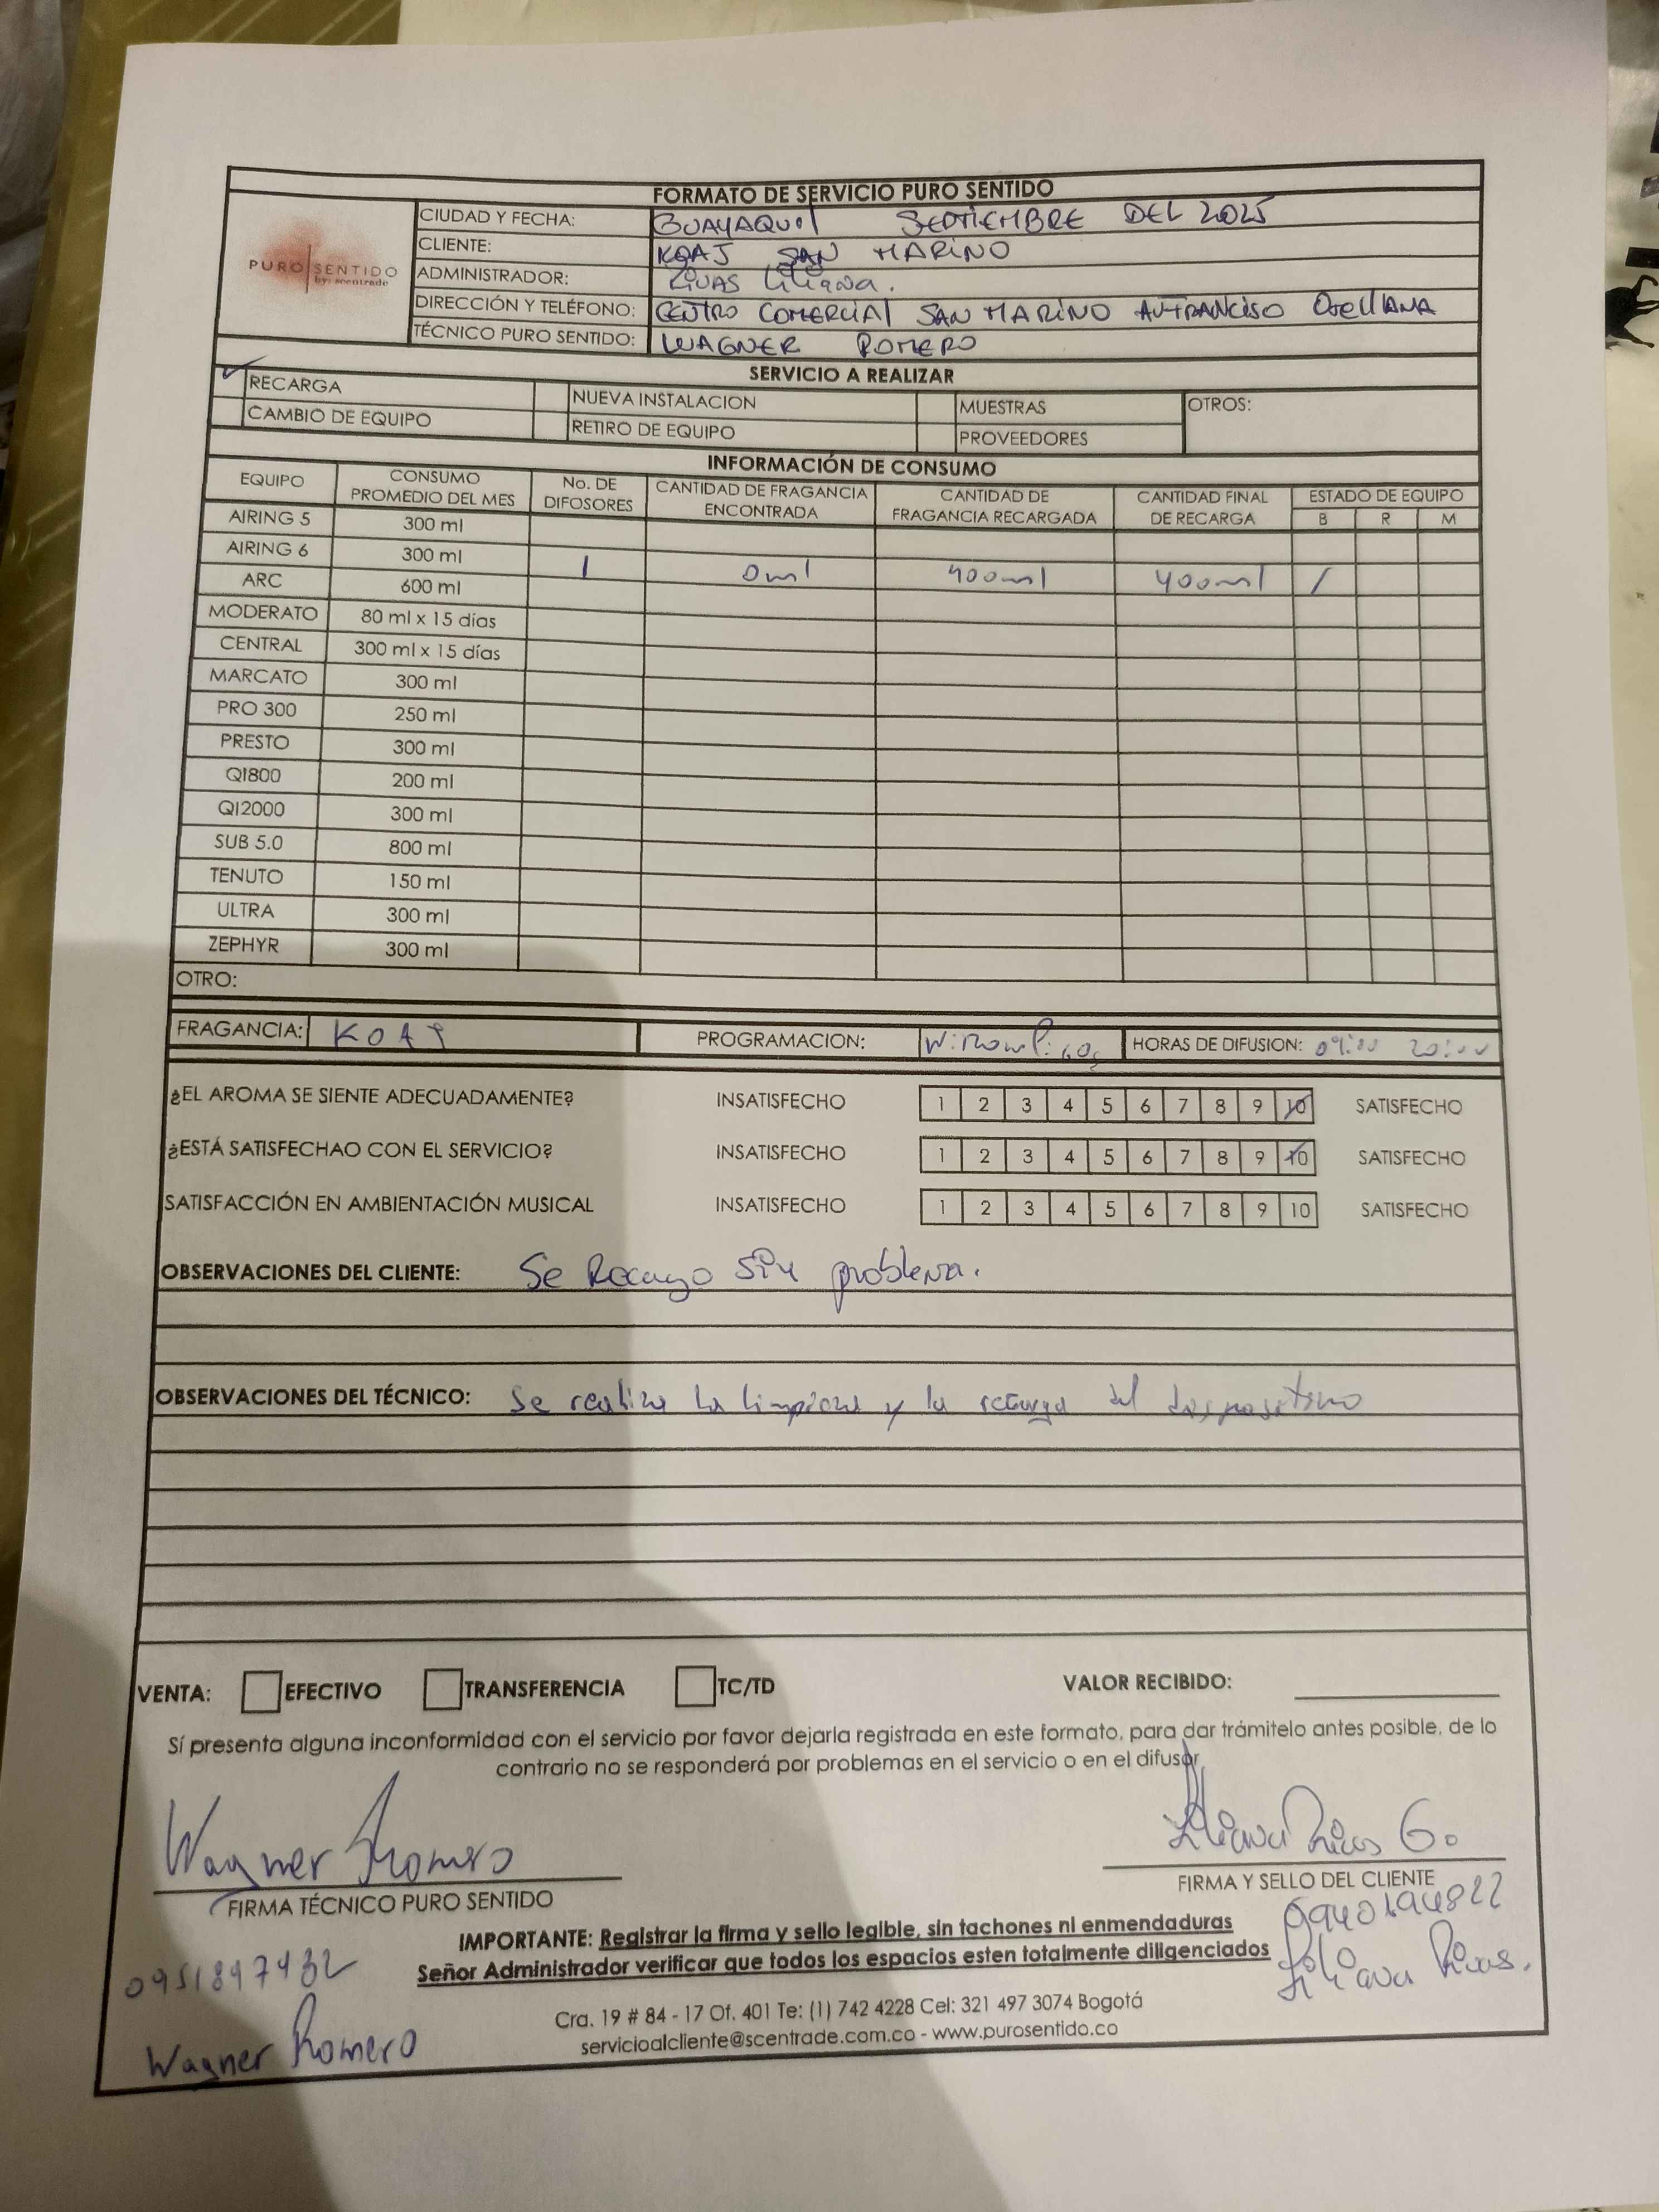 FORMATO DE SERVICIO PURO SENTIDO
PURO SENTIDO
by: scentrade
CIUDAD Y FECHA: GUAYAQUIL SEPTIEMBRE DEL 2025
CLIENTE: KOAJ SAN MARINO
ADMINISTRADOR: Rivas Liliana.
DIRECCIÓN Y TELÉFONO: CENTRO COMERCIAL SAN MARINO AV FRANCISO Orellana
TÉCNICO PURO SENTIDO: WAGNER ROMERO
SERVICIO A REALIZAR
✓ RECARGA NUEVA INSTALACION MUESTRAS OTROS:
CAMBIO DE EQUIPO RETIRO DE EQUIPO PROVEEDORES
INFORMACIÓN DE CONSUMO
EQUIPO CONSUMO PROMEDIO DEL MES No. DE DIFOSORES CANTIDAD DE FRAGANCIA ENCONTRADA CANTIDAD DE FRAGANCIA RECARGADA CANTIDAD FINAL DE RECARGA ESTADO DE EQUIPO
B R M
AIRING 5 300 ml
AIRING 6 300 ml
ARC 600 ml 1 0ml 400ml 400ml /
MODERATO 80 ml x 15 días
CENTRAL 300 ml x 15 días
MARCATO 300 ml
PRO 300 250 ml
PRESTO 300 ml
QI800 200 ml
QI2000 300 ml
SUB 5.0 800 ml
TENUTO 150 ml
ULTRA 300 ml
ZEPHYR 300 ml
OTRO:
FRAGANCIA: KOAJ PROGRAMACION: HORAS DE DIFUSION: 09:00 20:00
¿EL AROMA SE SIENTE ADECUADAMENTE? INSATISFECHO 1 2 3 4 5 6 7 8 9 10 SATISFECHO
¿ESTÁ SATISFECHAO CON EL SERVICIO? INSATISFECHO 1 2 3 4 5 6 7 8 9 10 SATISFECHO
SATISFACCIÓN EN AMBIENTACIÓN MUSICAL INSATISFECHO 1 2 3 4 5 6 7 8 9 10 SATISFECHO
OBSERVACIONES DEL CLIENTE: Se Recargo sin problema.
OBSERVACIONES DEL TÉCNICO: Se realiza la limpieza y la recarga del dispositivo
VENTA: EFECTIVO TRANSFERENCIA TC/TD VALOR RECIBIDO:
Sí presenta alguna inconformidad con el servicio por favor dejarla registrada en este formato, para dar trámitelo antes posible, de lo
contrario no se responderá por problemas en el servicio o en el difusor
Wagner Romero Liliana Rivas G.
FIRMA TÉCNICO PURO SENTIDO FIRMA Y SELLO DEL CLIENTE
IMPORTANTE: Registrar la firma y sello legible, sin tachones ni enmendaduras
Señor Administrador verificar que todos los espacios esten totalmente diligenciados
Liliana Rivas.
Wagner Romero
Cra. 19 # 84 - 17 Of. 401 Te: (1) 742 4228 Cel: 321 497 3074 Bogotá
servicioalcliente@scentrade.com.co - www.purosentido.co